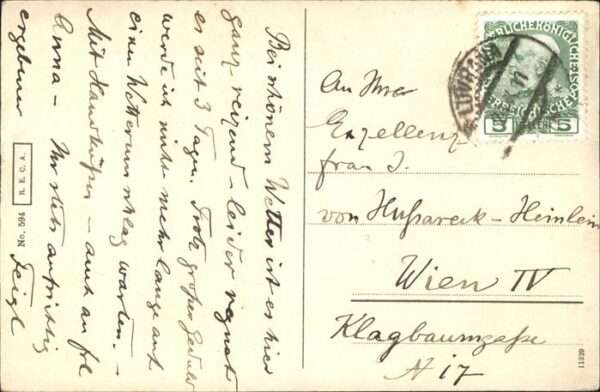 Bei schönem Wetter ist es hier
ganz reizend – leider regnet
es seit 3 Tagen. Trotz großer Geduld
werde ich nicht mehr lange auf
einen Wetterumschlag warten. –
Mit Handküssen – auch an
Anna – Ihr stets aufrichtig
ergebener Feigl
No. 594 R. E. C. A.
LOVRANA
5 5
An Ihre
Exzellenz
frau J.
von Hußareck - Heinlein
Wien IV
Klagbaumgaße
N 17
11229